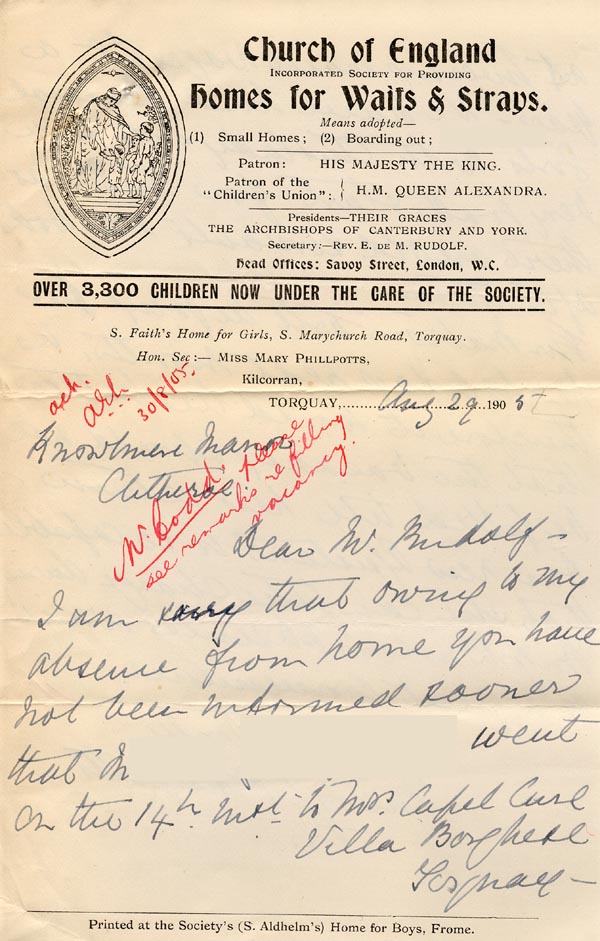 Church of England
Incorporated Society for Providing
Homes for Waifs & Strays.
Means adopted—
(1) Small Homes; (2) Boarding out;
Patron: HIS MAJESTY THE KING.
Patron of the "Children's Union": { H.M. QUEEN ALEXANDRA.
Presidents—THEIR GRACES
THE ARCHBISHOPS OF CANTERBURY AND YORK.
Secretary:—Rev. E. de M. RUDOLF.
Head Offices: Savoy Street, London, W.C.
OVER 3,300 CHILDREN NOW UNDER THE CARE OF THE SOCIETY.
S. Faith's Home for Girls, S. Marychurch Road, Torquay.
Hon. Sec:— Miss Mary Phillpotts,
Kilcorran,
TORQUAY,......Aug 29..190 5
ack.
30/8/05.
Knowlmere Manor
Clitheroe
Mr. Codd, please
see remarks re filling
vacancy.
Dear Mr. Rudolf—
I am sorry that owing to my
absence from home you have
not been informed sooner
that M went
on the 14th inst to Mrs. Capel Cure
Villa Borghese
Torquay—
Printed at the Society's (S. Aldhelm's) Home for Boys, Frome.